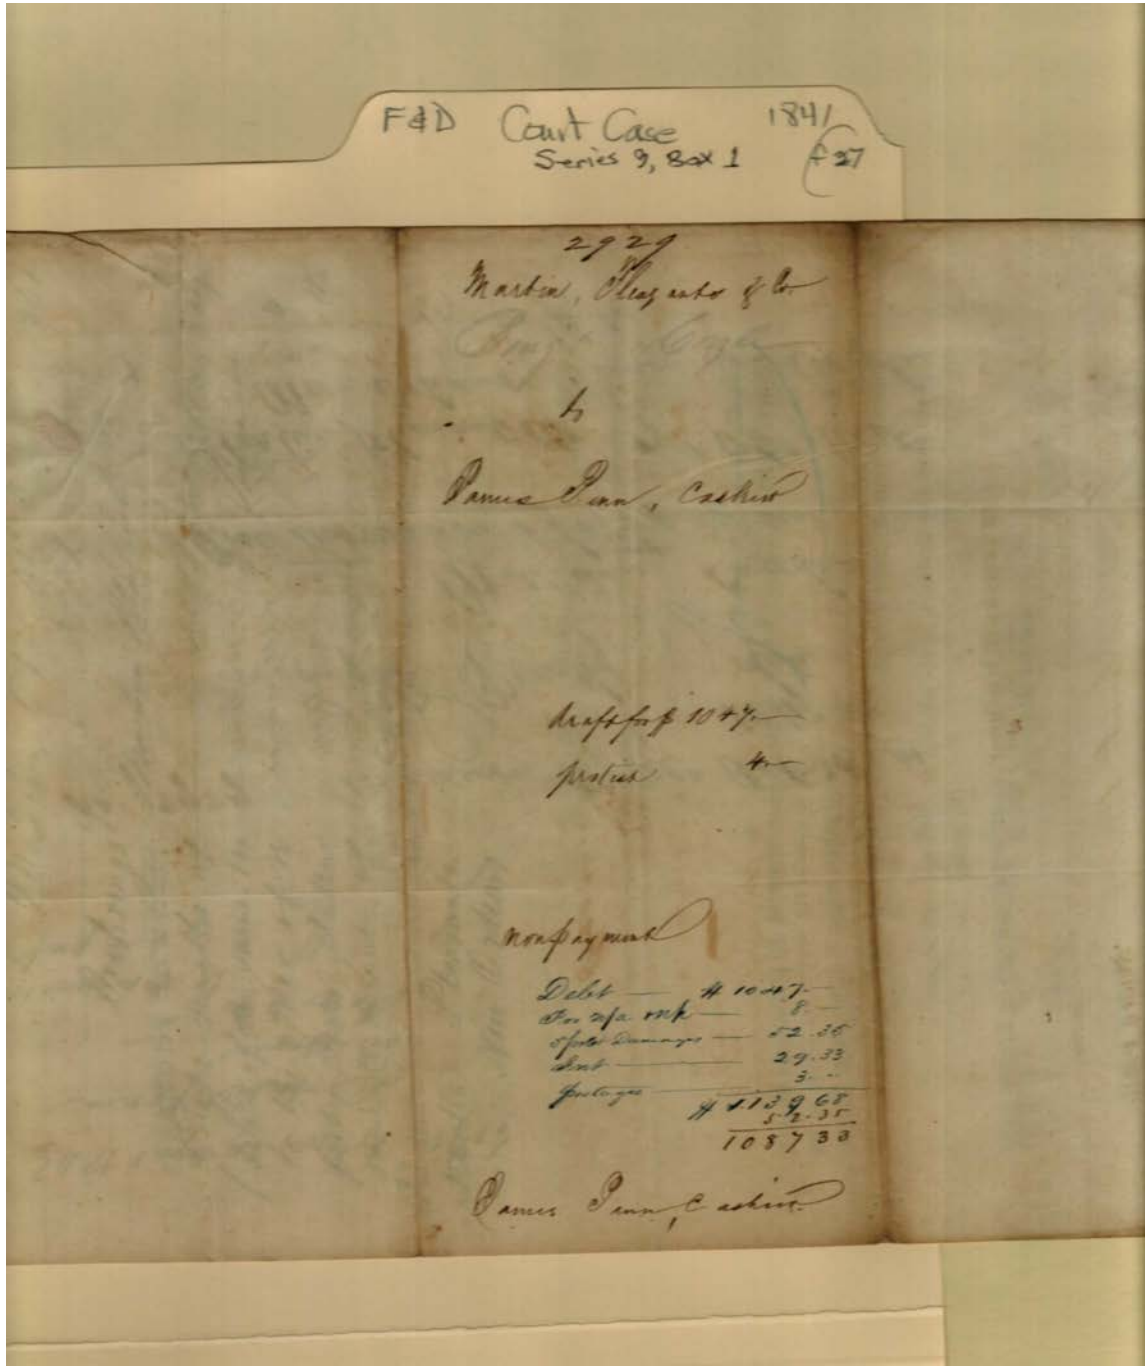 F&D Court Case 1841
Series 9, Box 1 f 27
2929
Martin, Pleasants & Co.
to
James Penn, Cashier
draft for $ 1047.—
protest 4.—
nonpayment
Debt — $ 1047.—
For n/a 8.—
5 prct Damages — 52.35
Int — 29.33
postages 3. ..
$ 1.139 68
52.35
1087 33
James Penn, Cashier